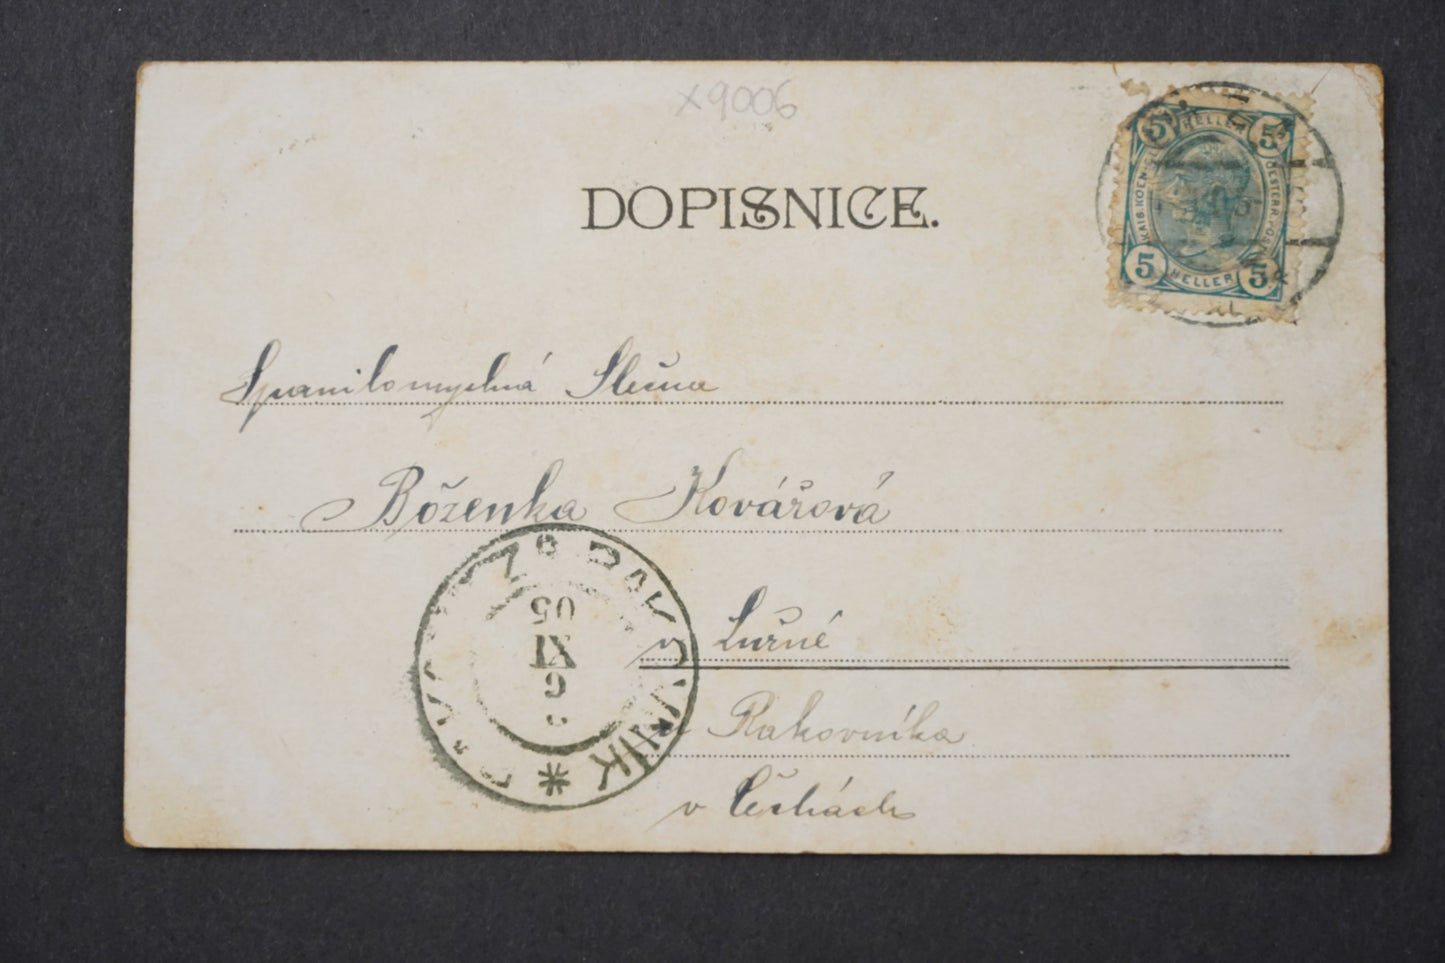 x9006
DOPISNICE.
5 HELLER 5
KAIS. KOEN. OESTERR. POST
5 HELLER 5
Spanilomyslná Slečna
Boženka Kovářová
v Lužné
u Rakovníka
v Čechách
RAKOVNÍK
6
XI
05